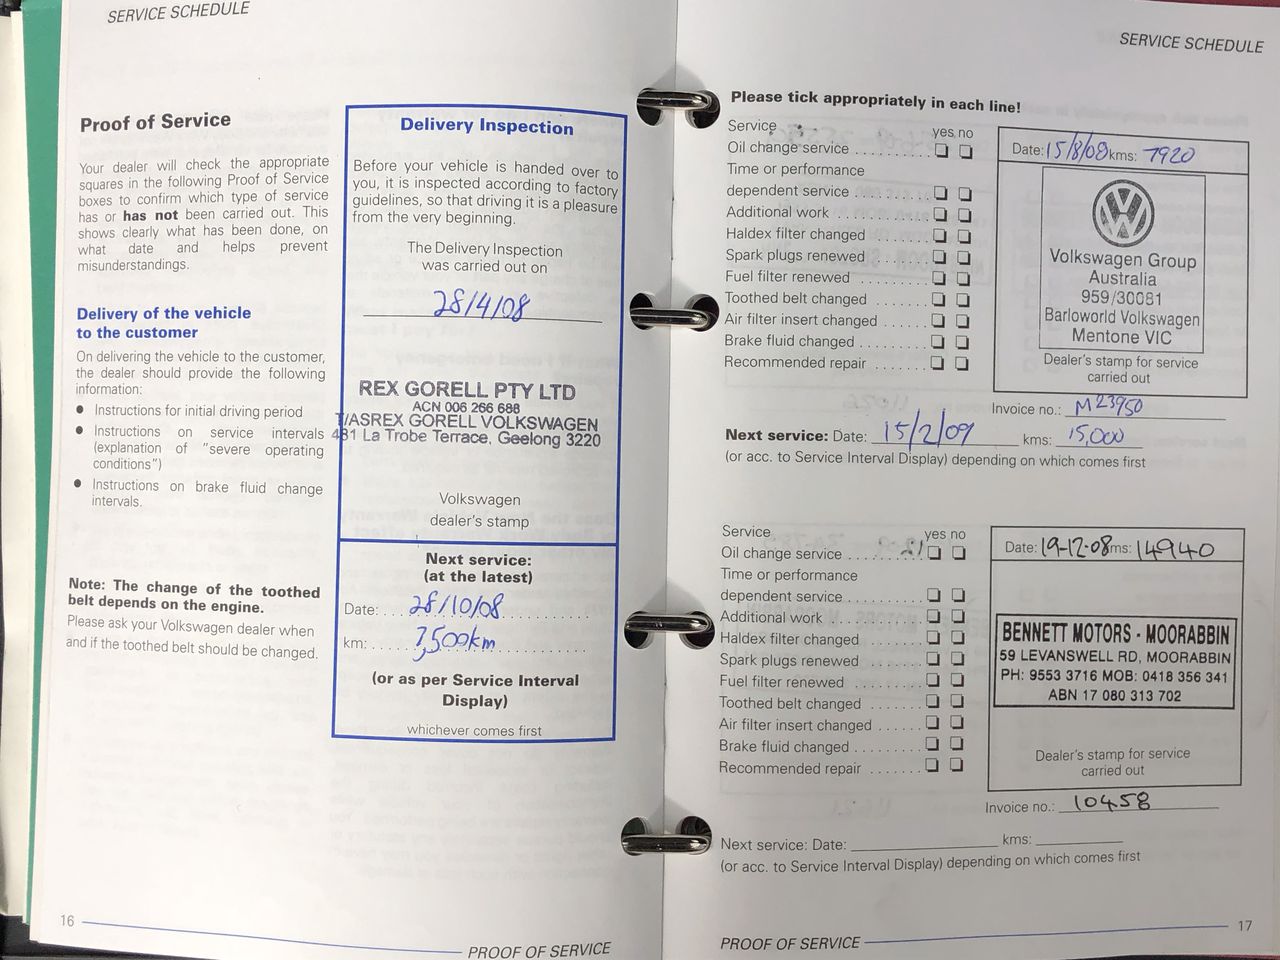 SERVICE SCHEDULE
Proof of Service
Your dealer will check the appropriate
squares in the following Proof of Service
boxes to confirm which type of service
has or has not been carried out. This
shows clearly what has been done, on
what date and helps prevent
misunderstandings.
Delivery of the vehicle
to the customer
On delivering the vehicle to the customer,
the dealer should provide the following
information:
● Instructions for initial driving period
● Instructions on service intervals
(explanation of "severe operating
conditions")
● Instructions on brake fluid change
intervals.
Note: The change of the toothed
belt depends on the engine.
Please ask your Volkswagen dealer when
and if the toothed belt should be changed.
Delivery Inspection
Before your vehicle is handed over to
you, it is inspected according to factory
guidelines, so that driving it is a pleasure
from the very beginning.
The Delivery Inspection
was carried out on
28/4/08
REX GORELL PTY LTD
ACN 006 266 688
T/ASREX GORELL VOLKSWAGEN
431 La Trobe Terrace, Geelong 3220
Volkswagen
dealer's stamp
Next service:
(at the latest)
Date: 28/10/08
km: 7,500km
(or as per Service Interval
Display)
whichever comes first
16
PROOF OF SERVICE
SERVICE SCHEDULE
Please tick appropriately in each line!
Service yes no
Oil change service
Time or performance
dependent service
Additional work
Haldex filter changed
Spark plugs renewed
Fuel filter renewed
Toothed belt changed
Air filter insert changed
Brake fluid changed
Recommended repair
Date: 15/8/08 kms: 7920
Volkswagen Group
Australia
959/30081
Barloworld Volkswagen
Mentone VIC
Dealer's stamp for service
carried out
Invoice no.: M23950
Next service: Date: 15/2/09 kms: 15,000
(or acc. to Service Interval Display) depending on which comes first
Service yes no
Oil change service
Time or performance
dependent service
Additional work
Haldex filter changed
Spark plugs renewed
Fuel filter renewed
Toothed belt changed
Air filter insert changed
Brake fluid changed
Recommended repair
Date: 19-12-08 ms: 14940
BENNETT MOTORS - MOORABBIN
59 LEVANSWELL RD, MOORABBIN
PH: 9553 3716 MOB: 0418 356 341
ABN 17 080 313 702
Dealer's stamp for service
carried out
Invoice no.: 10458
Next service: Date: kms:
(or acc. to Service Interval Display) depending on which comes first
17
PROOF OF SERVICE